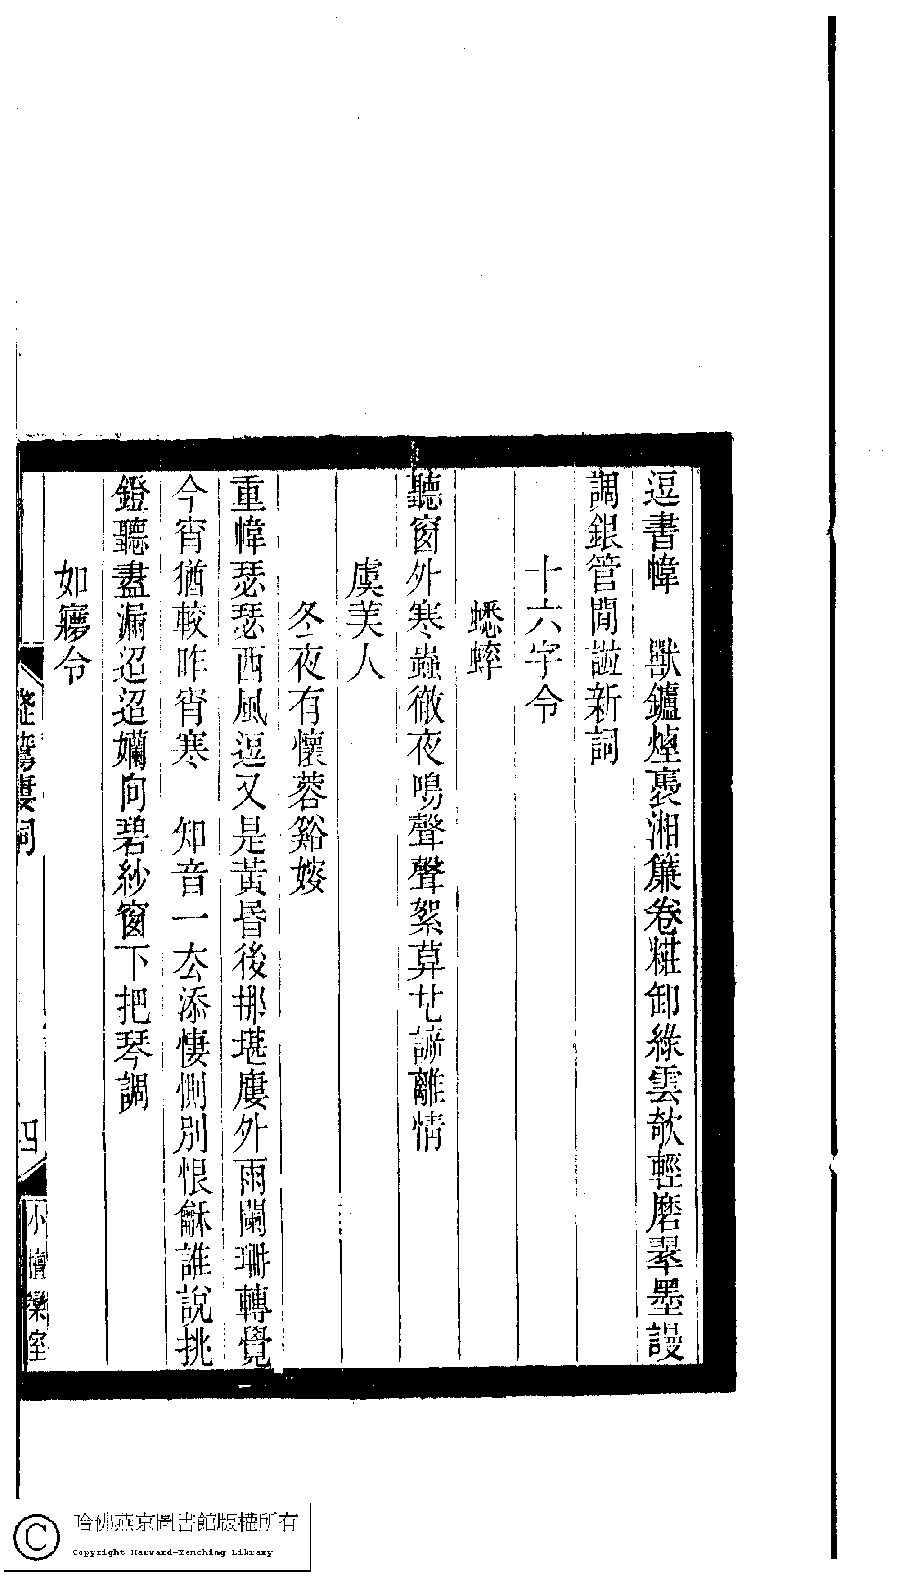 逗書幃　獸鑪煙裛湘簾卷糚卸綠雲欹輕磨翠墨謾
調銀管閒譜新詞
十六字令
蟋蟀
聽窗外寒蟲徹夜鳴聲聲絮莫是訴離情
虞美人
冬夜有懷蓉谿嫂
重幃瑟瑟西風逗又是黃昏後那堪廔外雨闌珊轉覺
今宵猶較昨宵寒　知音一厺添悽惻別恨龢誰說挑
鐙聽盡漏迢迢嬾向碧紗窗下把琴調
如㝱令
詞
四
小檀欒室
哈佛燕京圖書館版權所有
Copyright Harvard-Yenching Library